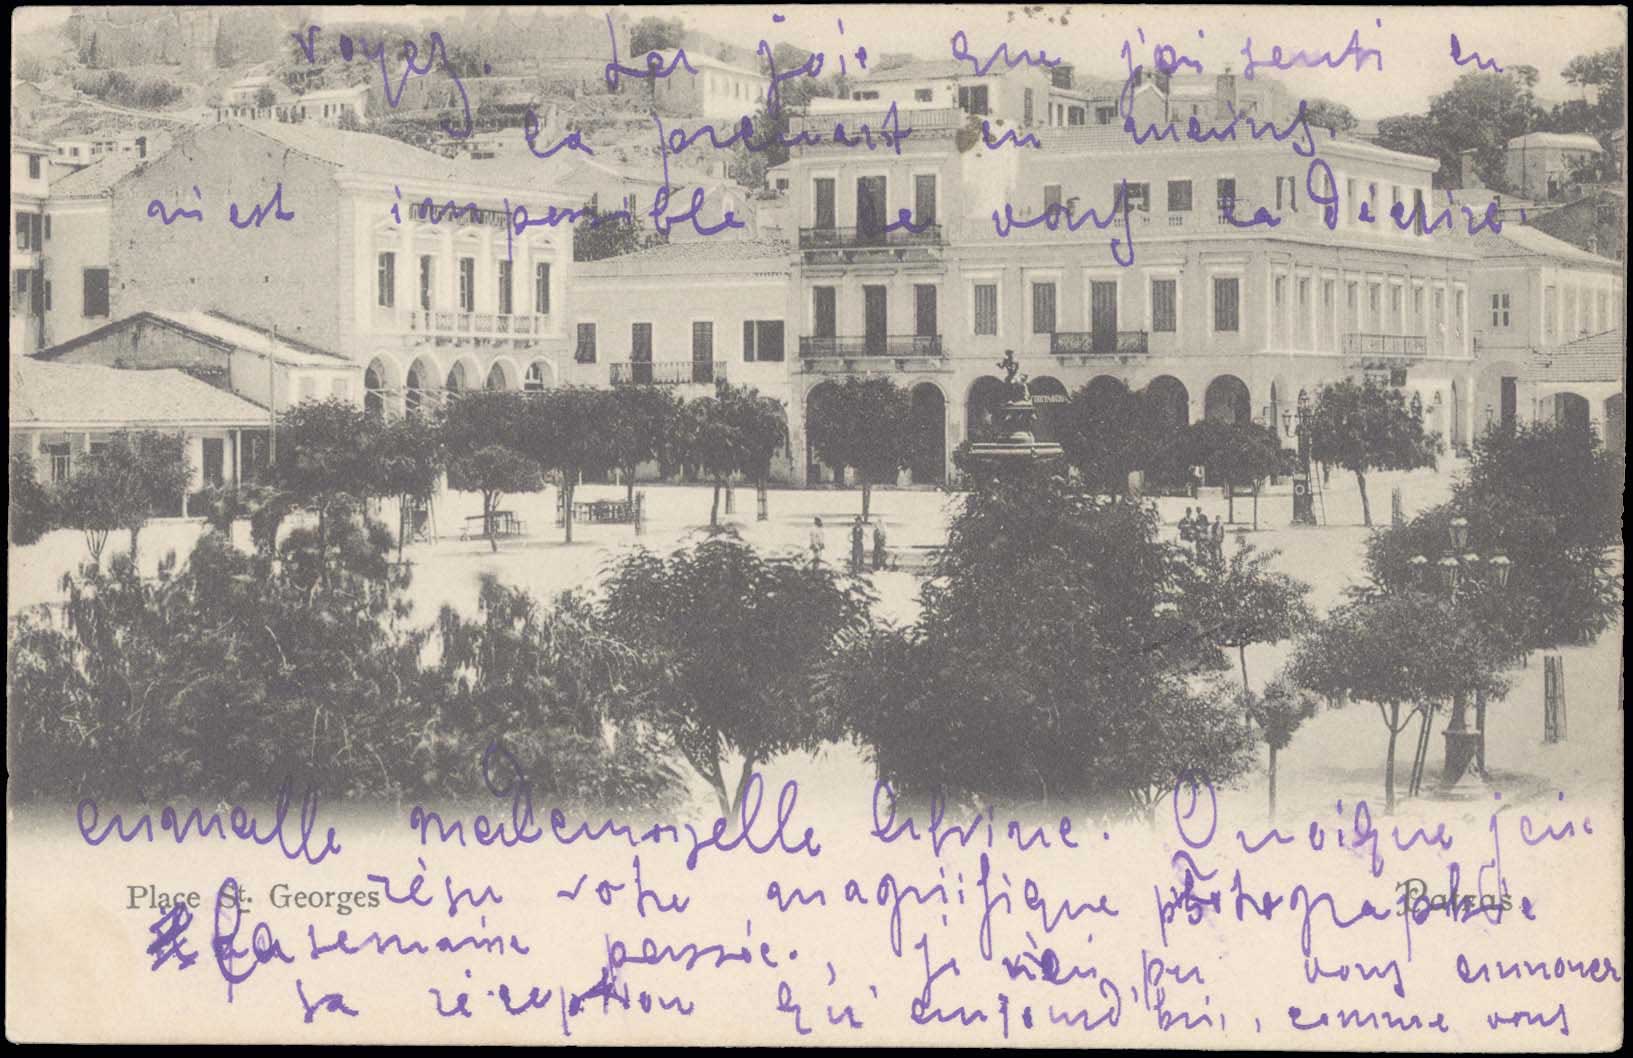 voyez. La joie que j'ai senti en
la prenant en mains.
m'est impossible de vous la décrire.
mademoiselle Quoique j'aie
Place St. Georges
Patras.
résu votre magnifique photographie
la semaine passée, je n'ai pu vous annoncer
sa réception qu'aujourd'hui, comme vous